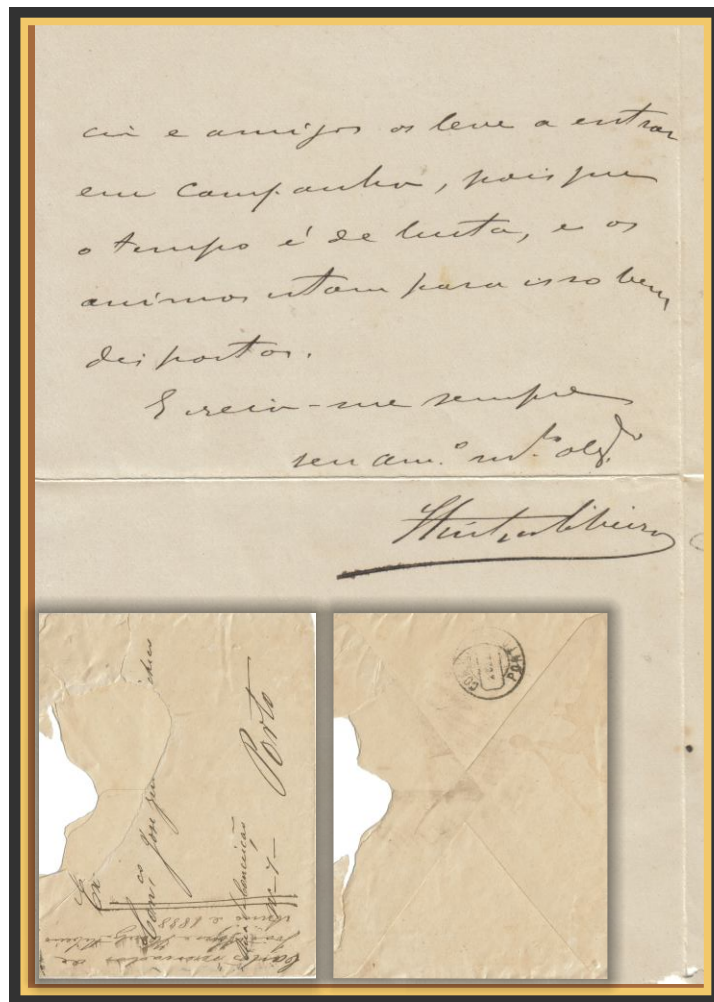 cia e amigos os leve a entrar
em campanha, pois que
o tempo é de lucta, e os
animos estam para isso bem
dispostos.
E creia-me sempre
seu am.º m.to obg.do
Hintze Ribeiro
Ex
Con.co José
Rua Conceição
Nº 7
Porto
Cartas
e 1888
PORT